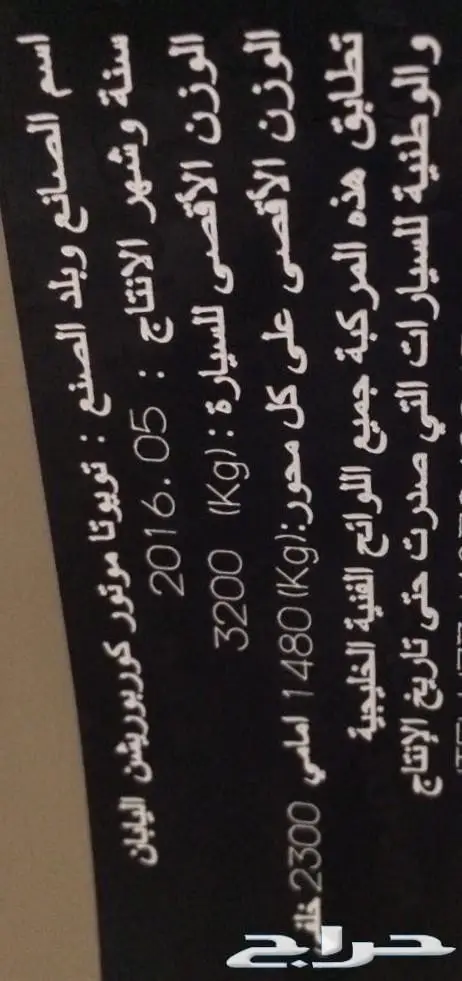 اسم الصانع وبلد الصنع : تويوتا موتور كوربوريشن اليابان
سنة وشهر الانتاج : 2016.05
الوزن الأقصى للسيارة :(Kg) 3200
الوزن الأقصى على كل محور:(Kg) 1480 امامي 2300 خلفي
تطابق هذه المركبة جميع اللوائح الفنية الخليجية
والوطنية للسيارات التي صدرت حتى تاريخ الإنتاج
حراج